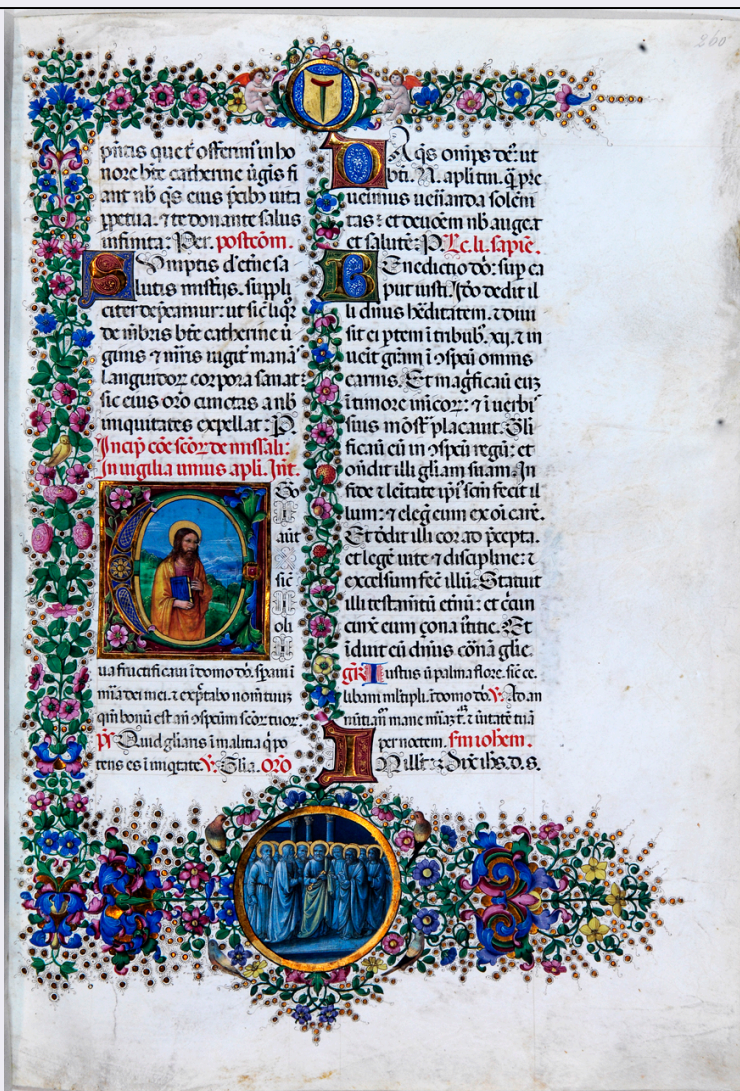 pñtis que t́ offerim᷒ in ho
nore bt̄e catherine ūgis fi
ant nb̄ q̄s eius p̄cib᷒ uita
ꝑpetua. ⁊ te donante salus
infinita: Per. postcōm.
Sumptis d'etn̄e sa
lutis mist̄ijs. suppli
citer dep̄camur: ut sic̄ liq̄r
de mēbris bt̄e catherine ū
ginis ⁊ m̄ris iugit̄ manās
languidoꝝ corpora sanat:
sic eius or̄o cunctas a nb̄
iniquitates expellat: P
Incip̄ cōe sc̄oꝝ de missali.
In uigilia unius apl̄i. Int̄.
Ego
aūt
sic̄
oli
ua fructificaui ī domo dn̄i. sp̄aui ī
mīa dei mei. ⁊ exp̄ctabo nom̄ tuuꝫ
qm̄ bonū est an̄ ɔsp̄ctum sc̄oꝝ tuoꝝ.
p̄s Quid gl̄iaris ī malitia q̄ po
tens es ī iniq̄tate. V. Gl̄ia. or̄o
Da q̄s om̄ps dē: ut
bt̄i. N. apl̄i tui. q̄ p̄re
uenimus ueñanda solēni
tas: et deuōem nb̄ auge.t
et salutē: P. Lc̄. li. sapiē.
Benedictio dn̄i: sup ca
put iusti. Iō dedit il
li dn̄us hēditatem. ⁊ diui
sit ei ptem ī tribub᷒. xij. ⁊ in
uenit gr̄am ī ɔsp̄cū omnis
carnis. Et magficauit euꝫ
ī timore inīcoꝝ: ⁊ ī uerbis
suis mōst᷒ placauit. Gl̄i
ficauit eū in ɔsp̄cū regū: et
oñdit illi gl̄iam suam. In
fide ⁊ leītate ip̄i᷒ sc̄m fecit il
lum: ⁊ elegit eum ex oī carē.
Et dedit illi cor ad p̄cepta.
et legē uite ⁊ discipline: ⁊
excelsum fec̄ illū. Statuit
illi testam̄tū etn̄ū: et c̄cūin
cinx̄ eum çona ītitie. Et
iduit eū dn̄us corōna glīe.
gr̄ Iustus ū palma flore. sic̄ ce.
libani ml̄tipl. ī domo dn̄i. V. Ad an
nūtiān mane mīaꝫ t. ⁊ ūitatē tuā
per noctem. sm̄ iohem.
In illo t: Dix̄ ih̄s. d. s.